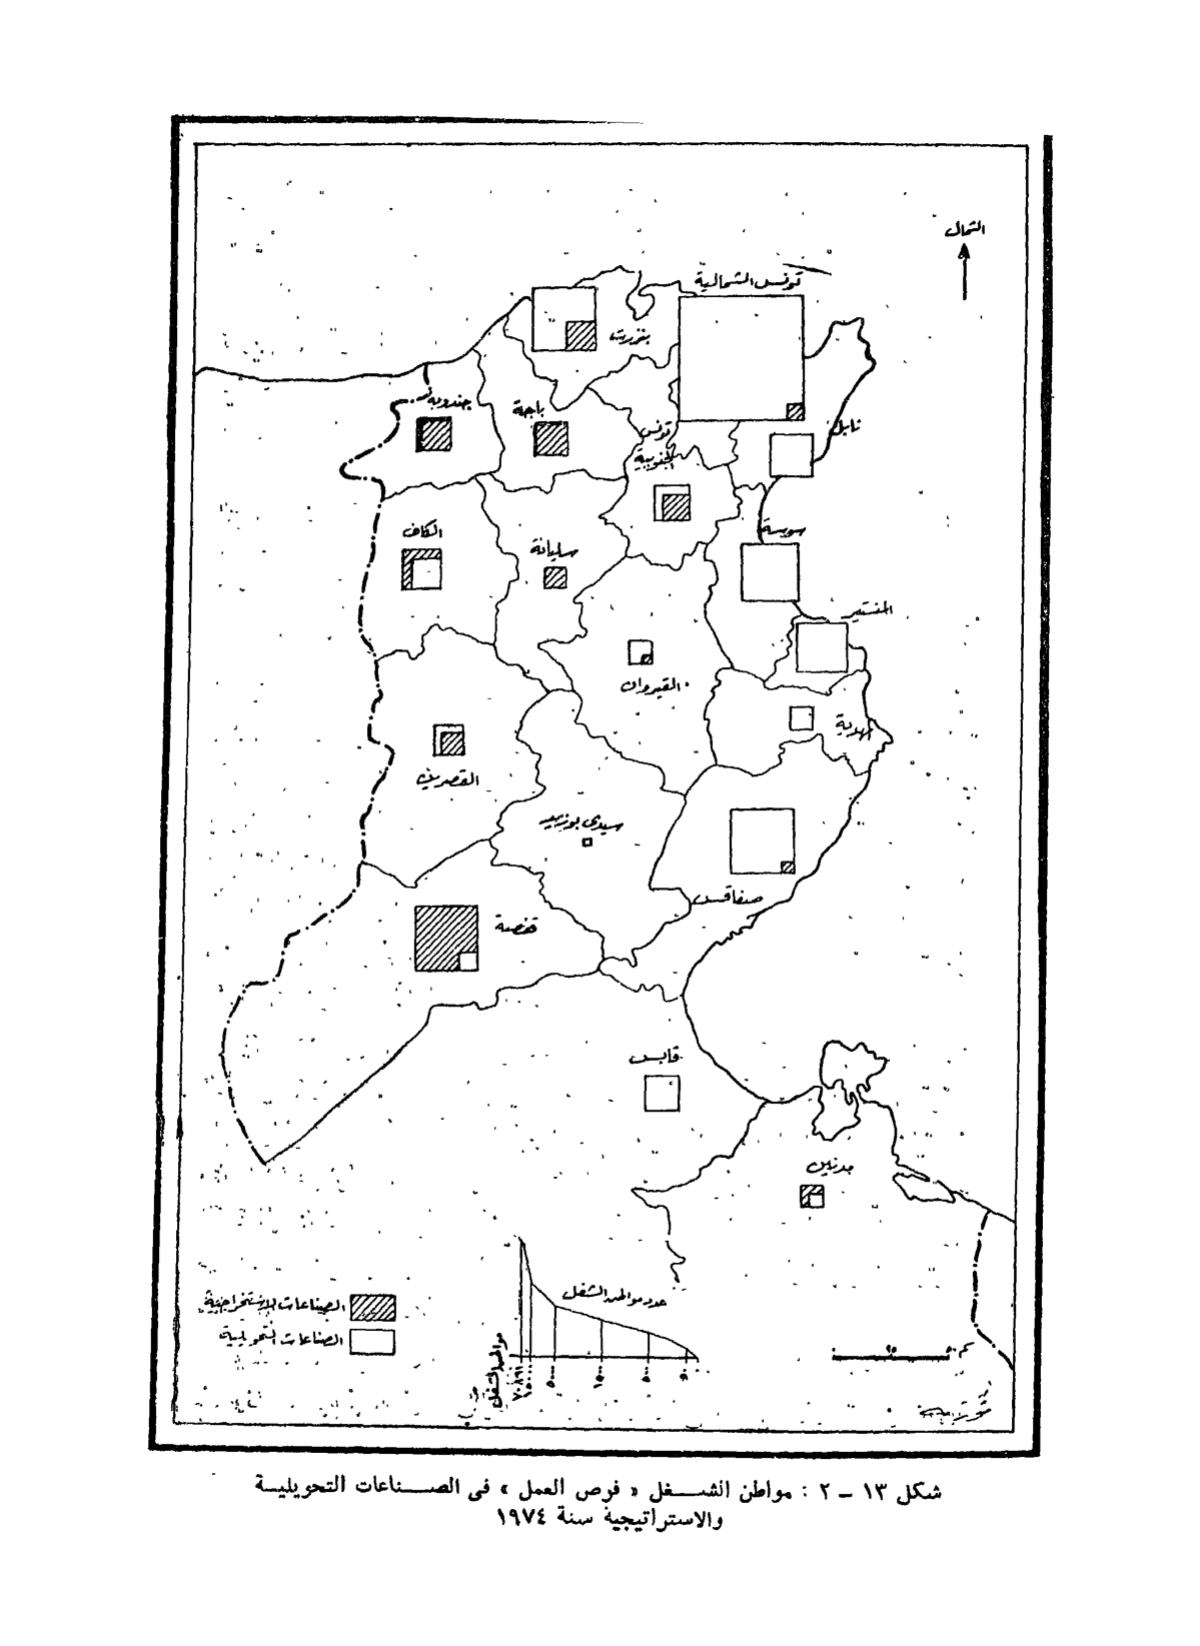 الشمال
تونس الشمالية
بنزرت
جندوبة
باجة
نابل
تونس
الجنوبية
سوسة
الكاف
سليانة
المنستير
القيروان
المهدية
القصرين
سيدي بوزيد
صفاقس
قفصة
قابس
مدنين
عدد مواطن الشغل
الصناعات الاستخراجية
الصناعات التحويلية
مواطن الشغل
٥٠٠٠
١٥٠٠
٥٠٠
كم
شكل ١٣ – ٢ : مواطن الشغل « فرص العمل » فى الصناعات التحويلية
والاستراتيجية سنة ١٩٧٤